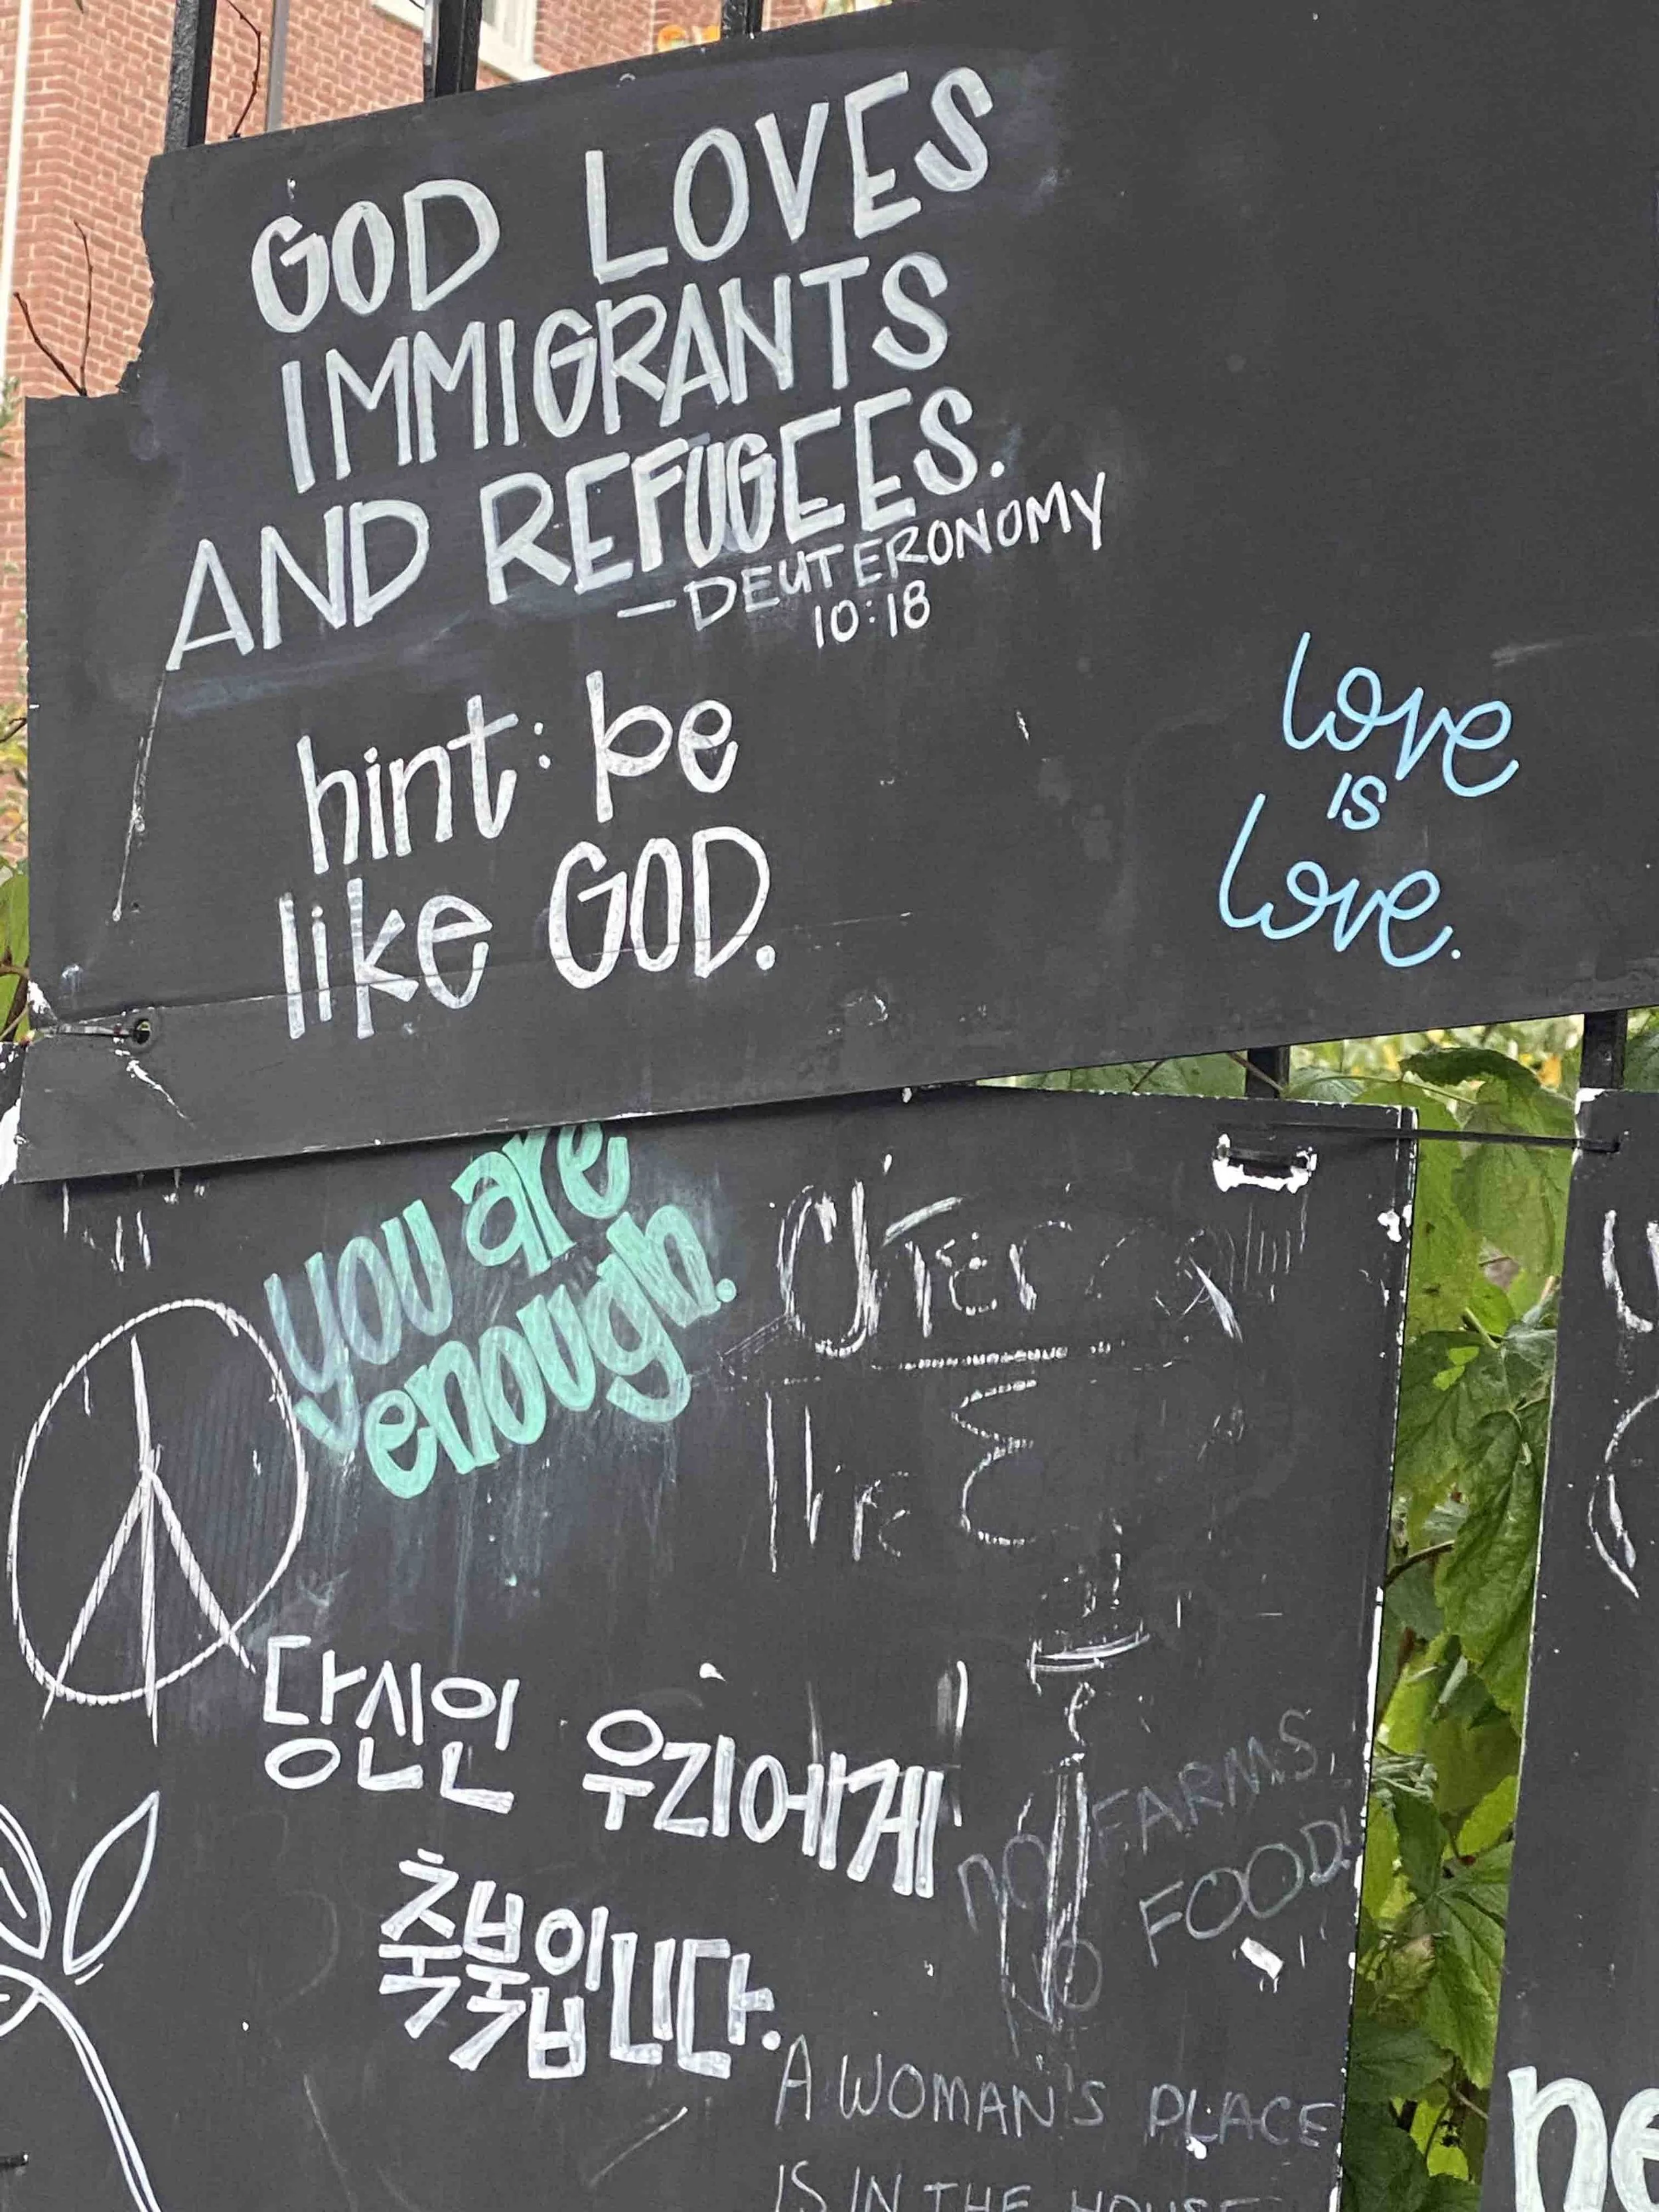 GOD LOVES
IMMIGRANTS
AND REFUGEES.
—DEUTERONOMY
10:18
hint: be
like GOD.
love
IS
love.
you are
enough.
the
당신은 우리에게
축복입니다.
NO FARMS,
NO FOOD!
A WOMAN'S PLACE
IS IN THE HOUSE